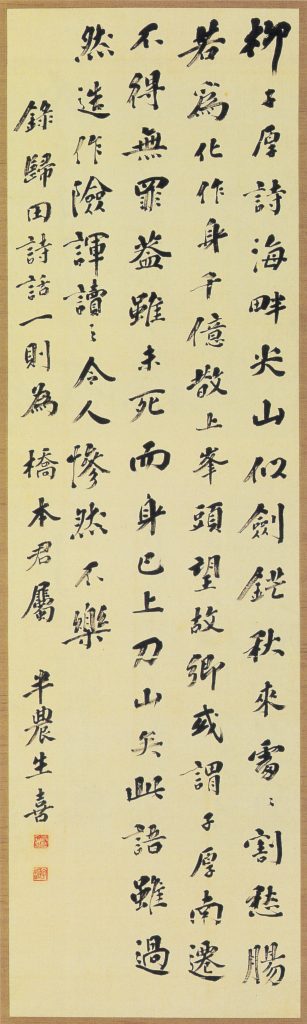 柳子厚詩海畔尖山似劍鋩秋來處ミ割愁腸
若為化作身千億散上峯頭望故鄉或謂子厚南遷
不得無罪蓋雖未死而身已上刃山矣此語雖過
然造作險諢讀ミ令人慘然不樂
錄歸田詩話一則為橋本君屬半農生喜